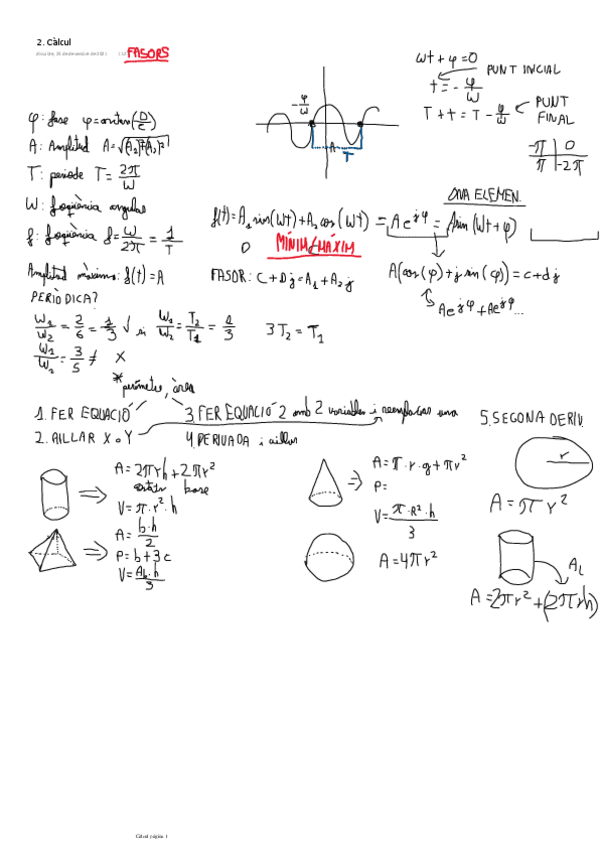 2. Càlcul
FASORS
ωt + φ = 0
PUNT INICIAL
t = - φ/ω
T + t = T - φ/ω
PUNT FINAL
-π | 0
π | -2π
-φ/ω
A
T
φ: fase φ = arctan(D/C)
A: Amplitud A = √(A₁)²+(A₂)²
T: periode T = 2π/ω
W: freqüència angular
f: freqüència f = ω/2π = 1/T
Amplitud màxima: f(t) = A
ONA ELEMEN.
f(t) = A₁ sin(Wt) + A₂ cos(Wt) = A e^jφ = A sin(Wt + φ)
MÍNIM/MÀXIM
FASOR: C + Dj = A₁ + A₂j
A(cos(φ) + j sin(φ)) = c + dj
Ae^jφ + Ae^jφ...
PERIODICA?
W₁/W₂ = 2/6 = 1/3 √ si W₁/W₂ = T₂/T₁ = 1/3 3T₂ = T₁
W₁/W₂ = 3/5 ≠ X
* perímetre, àrea
1. FER EQUACIÓ
3. FER EQUACIÓ 2 amb 2 variables i reemplaçar una
5. SEGONA DERIV.
2. AILLAR X o Y
4. DERIVADA i aillar
A = 2πrh + 2πr²
base
V = π·r²·h
A = b·h/2
P = b + 3c
V = Ab·h/3
A = π·r·g + πr²
P =
V = π·R²·h/3
A = 4πr²
r
A = πr²
AL
A = 2πr² + (2πrh)
Càlcul pàgina 1